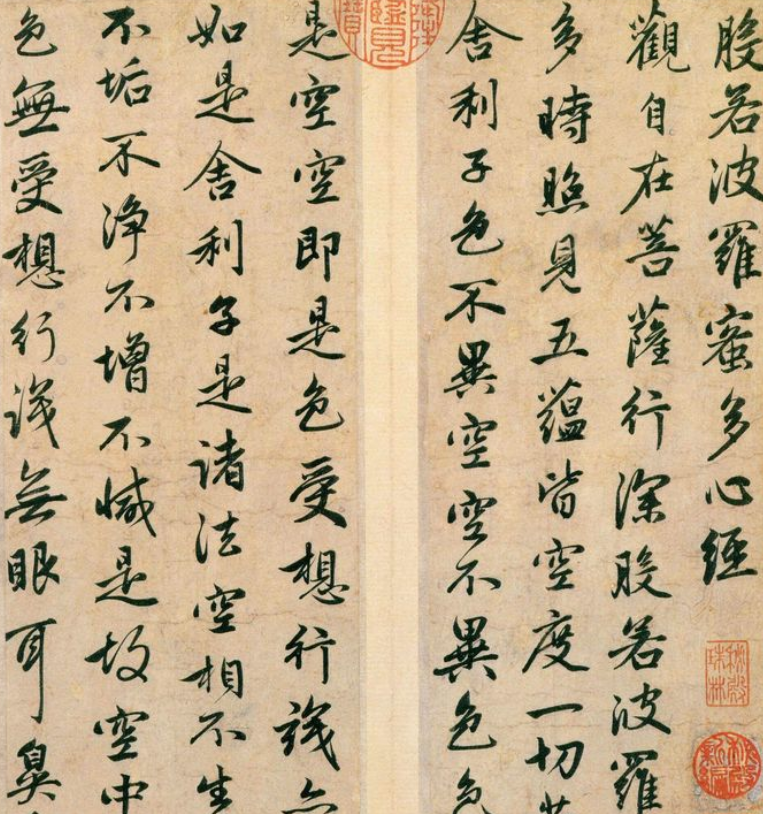 般若波羅蜜多心經
觀自在菩薩行深般若波羅
多時照見五蘊皆空度一切苦
舍利子色不異空空不異色色
是空空即是色受想行識亦
如是舍利子是諸法空相不生
不垢不淨不增不減是故空中
色無受想行識無眼耳鼻